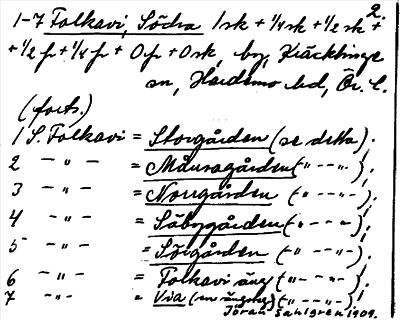 2.
1-7 Folkavi, Södra 1 sk + 1/4 sk + 1/2 sk +
+ 1/2 fr + 1/4 fr + 0 fr + 0 sk, by, Kräcklinge
sn, Hardemo hd, Ör. l.
(forts.)
1 S. Folkavi = Storgården (se detta).
2 — " — = Månsagården (— " — — " —);
3 — " — = Norrgården (" — — " —);
4 — " — = Säbygården (— " — — " —);
5 — " — = Sörgården (— " — — " —);
6 — " — = Folkavi äng (— " — — " —);
7 — " — = Via (en ängsbg) (— " — — " —);
Jöran Sahlgren 1909.